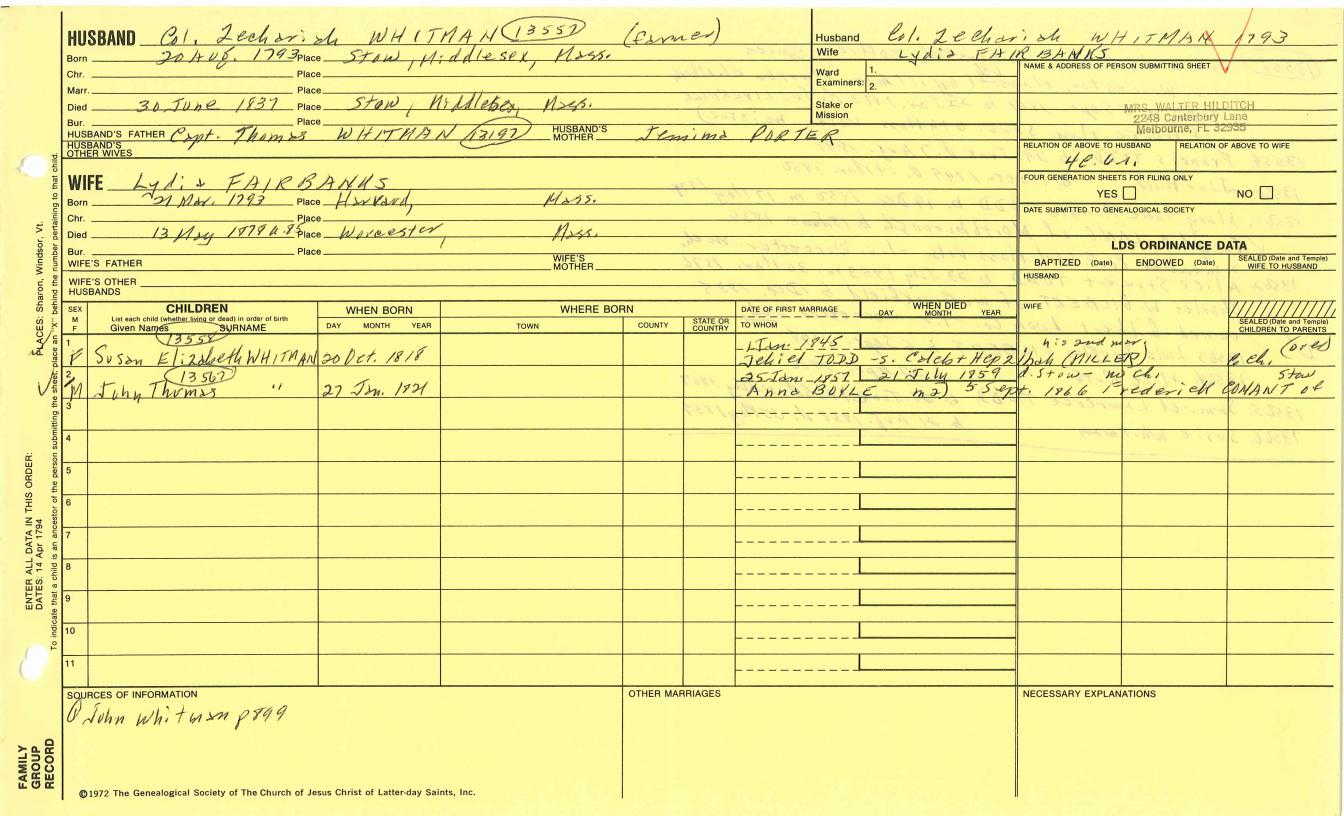 HUSBAND Col. Zechariah WHITMAN 13557 (farmer)
Born 20 Aug. 1793 Place Stow, Middlesex, Mass.
Chr. Place
Marr. Place
Died 30 June 1837 Place Stow, Middlesex, Mass.
Bur. Place
HUSBAND'S FATHER Capt. Thomas WHITMAN 13197 HUSBAND'S MOTHER Jemima PORTER
HUSBAND'S OTHER WIVES
WIFE Lydia FAIRBANKS
Born 21 Mar. 1793 Place Harvard, Mass.
Chr. Place
Died 13 May 1878 Place Worcester, Mass.
Bur. Place
WIFE'S FATHER WIFE'S MOTHER
WIFE'S OTHER HUSBANDS
Husband Col. Zechariah WHITMAN 1793
Wife Lydia FAIRBANKS
Ward Examiners: 1. 2.
Stake or Mission
NAME & ADDRESS OF PERSON SUBMITTING SHEET
MRS. WALTER HILDITCH
2248 Canterbury Lane
Melbourne, FL 32935
RELATION OF ABOVE TO HUSBAND RELATION OF ABOVE TO WIFE
FOUR GENERATION SHEETS FOR FILING ONLY
YES NO
DATE SUBMITTED TO GENEALOGICAL SOCIETY
LDS ORDINANCE DATA
BAPTIZED (Date) ENDOWED (Date) SEALED (Date and Temple) WIFE TO HUSBAND
HUSBAND
WIFE
SEALED (Date and Temple) CHILDREN TO PARENTS
SEX M F
CHILDREN
List each child (whether living or dead) in order of birth
Given Names SURNAME
WHEN BORN
DAY MONTH YEAR
WHERE BORN
TOWN COUNTY STATE OR COUNTRY
DATE OF FIRST MARRIAGE
TO WHOM
WHEN DIED
DAY MONTH YEAR
1 13558 1 Jan. 1845 his 2nd mar.
F Susan Elizabeth WHITMAN 20 Oct. 1818 Jehiel TODD - s. Caleb + Hepzibah (MILLER) 6 ch.
2 13567 25 Jan. 1857 21 July 1859 d. Stow - no ch. Stow
M John Thomas " 27 Jan. 1821 Anna BOYLE m2) 5 Sept. 1866 Frederick CONANT of
3
4
5
6
7
8
9
10
11
SOURCES OF INFORMATION
John Whitman p899
OTHER MARRIAGES
NECESSARY EXPLANATIONS
©1972 The Genealogical Society of The Church of Jesus Christ of Latter-day Saints, Inc.
FAMILY GROUP RECORD
ENTER ALL DATA IN THIS ORDER:
DATES: 14 Apr 1794
PLACES: Sharon, Windsor, Vt.
To indicate that a child is an ancestor of the person submitting the sheet, place an "X" behind the number pertaining to that child.